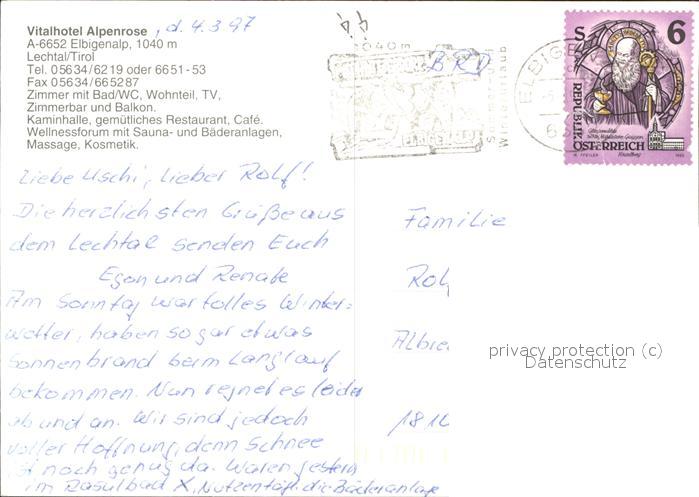 Vitalhotel Alpenrose , d. 4.3.97
A-6652 Elbigenalp, 1040 m
Lechtal/Tirol
Tel. 05634/6219 oder 6651-53
Fax 05634/665287
Zimmer mit Bad/WC, Wohnteil, TV,
Zimmerbar und Balkon.
Kaminhalle, gemütliches Restaurant, Café.
Wellnessforum mit Sauna- und Bäderanlagen,
Massage, Kosmetik.
Liebe Uschi, lieber Rolf!
Die herzlichsten Grüße aus
dem Lechtal senden Euch
Egon und Renate
Am Sonntag war tolles Winter=
wetter, haben sogar etwas
Sonnenbrand beim Langlauf
bekommen. Nun regnet es leider
ab und an. Wir sind jedoch
voller Hoffnung, denn Schnee
ist noch genug da. Waren gestern
im Rasulbad X, Nutzen tägl. die Bäderanlage
1040m
BRD
ELBIGE
S 6
REPUBLIK
ÖSTERREICH
Familie
Rol
Albre
privacy protection (c)
Datenschutz
181